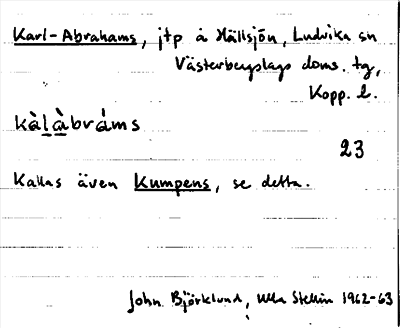 Karl-Abrahams, jtp å Hällsjön, Ludvika sn
Västerbergslags doms. tg,
Kopp. l.
kàlàbráms
23
Kallas även Kumpens, se detta.
John Björklund, Ulla Stellin 1962-63